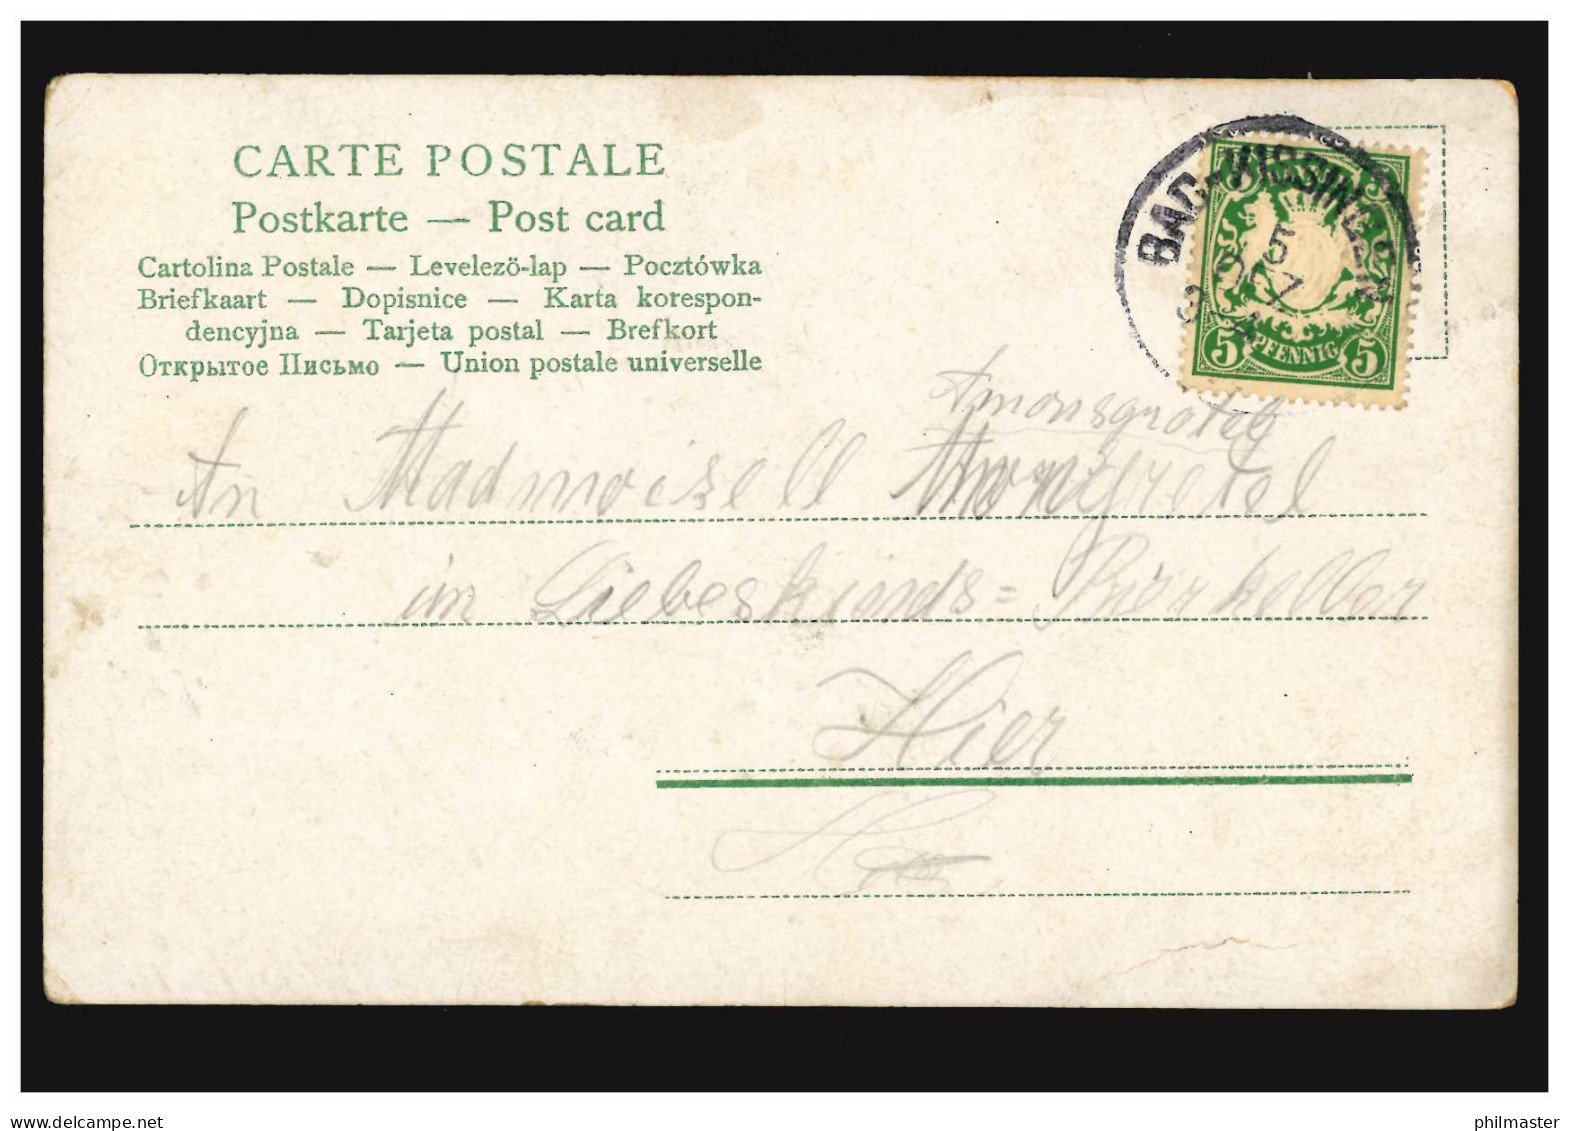 CARTE POSTALE
Postkarte — Post card
Cartolina Postale — Levelezö-lap — Pocztówka
Briefkaart — Dopisnice — Karta korespon-
dencyjna — Tarjeta postal — Brefkort
Открытое Письмо — Union postale universelle
BAD-KISSINGEN
5
PFENNIG
5 5
An Madmoisell
im Liebeskinds= Bierkeller
Hier
www.delcampe.net
philmaster